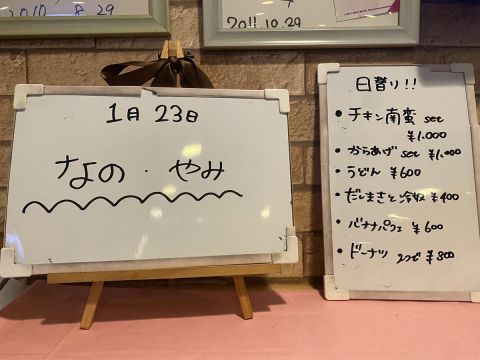 2010.8.29
2011.10.29
1月23日
なの・やみ
日替り!!
• チキン南蛮 set
¥1.000
• からあげ set ¥1.000
• うどん ¥600
• だしまきと冷奴 ¥400
• バナナパフェ ¥600
• ドーナツ 2つで ¥800